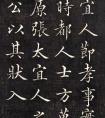 宜人鄞孝事
時都人士方萬
原張太宜人
公以其狀入